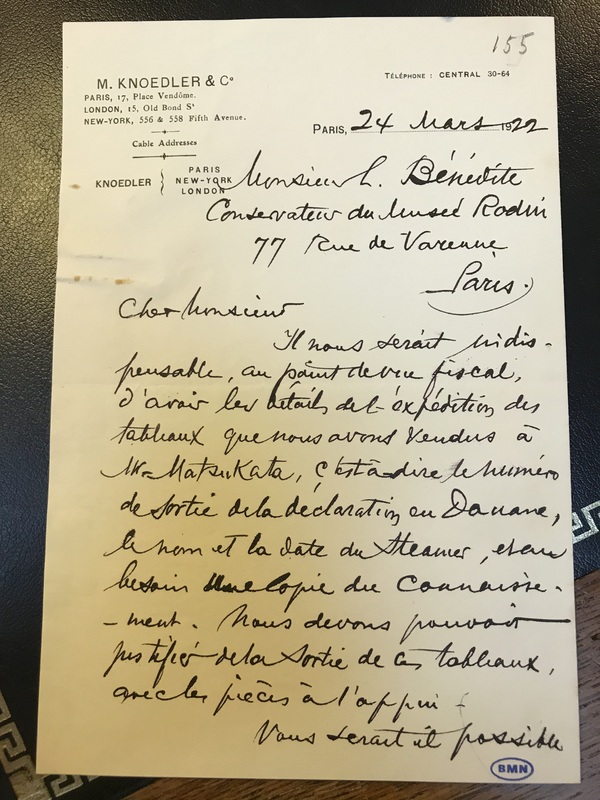 155
M. KNOEDLER & Cº
TÉLÉPHONE : CENTRAL 30-64
PARIS, 17, Place Vendôme.
LONDON, 15, Old Bond St
NEW-YORK, 556 & 558 Fifth Avenue.
PARIS, 24 Mars 1922
Cable Addresses
KNOEDLER
PARIS
NEW-YORK
LONDON
Monsieur L. Bénédite
Conservateur du Musée Rodin
77 Rue de Varenne
Paris.
Cher Monsieur
Il nous serait indis-
pensable, au point de vue fiscal,
d'avoir les détails de l'expédition des
tableaux que nous avons vendus à
Mr Matsukata, c'est à dire le numéro
de sortie de la déclaration en Douane,
le nom et la date du Steamer, et au
besoin une copie du Connaisse-
-ment. Nous devons pouvoir
justifier de la sortie de ces tableaux,
avec les pièces à l'appui
Vous serait il possible
BMN